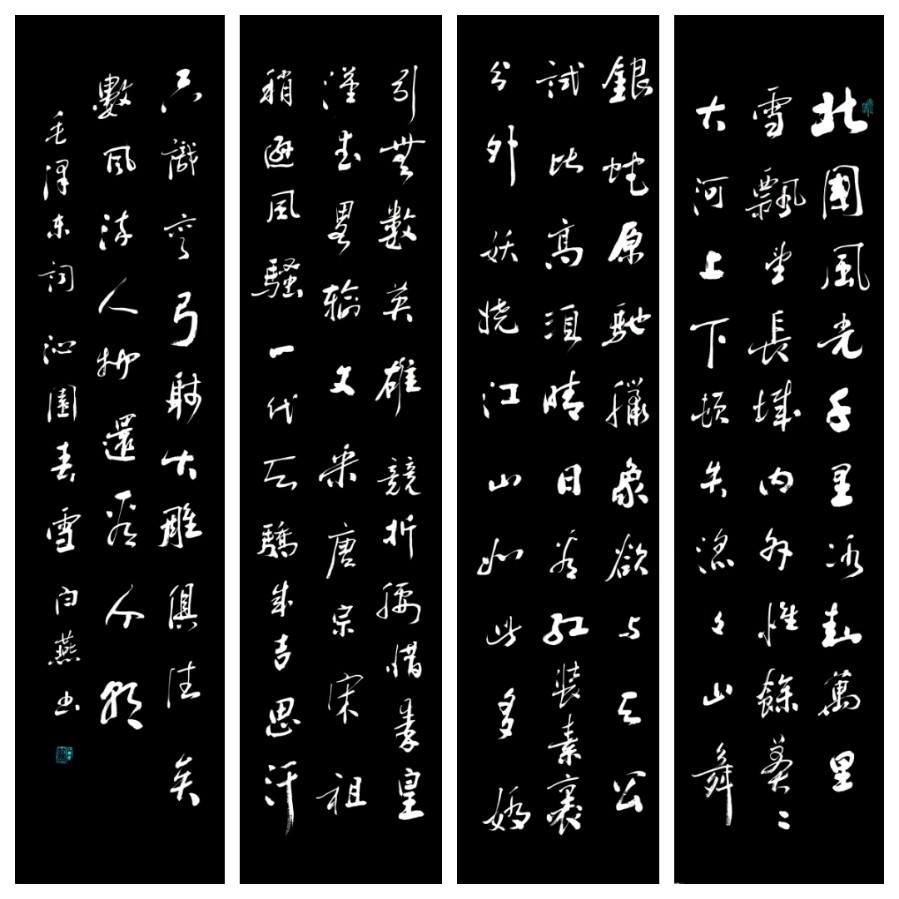 北國風光千里冰封萬里
雪飄望長城内外惟餘莽〻
大河上下頓失滔〻山舞
銀蛇原馳臘象欲与天公
試比高須晴日看紅裝素裹
分外妖嬈江山如此多嬌
引無數英雄競折腰惜秦皇
漢武畧輸文采唐宗宋祖
稍遜風騷一代天驕成吉思汗
只識彎弓射大雕俱往矣
數風流人物還看今朝
毛澤东詞沁園春雪白燕书